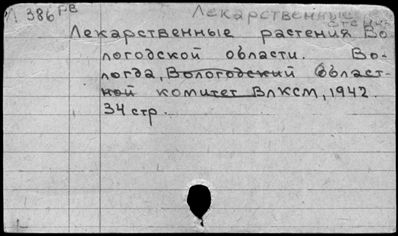 Л 386 РВ Лекарственные
Лекарственные растения Во-
логодской области. Во-
логда, Вологодский Област-
ной комитет ВЛКСМ, 1942.
34 стр.